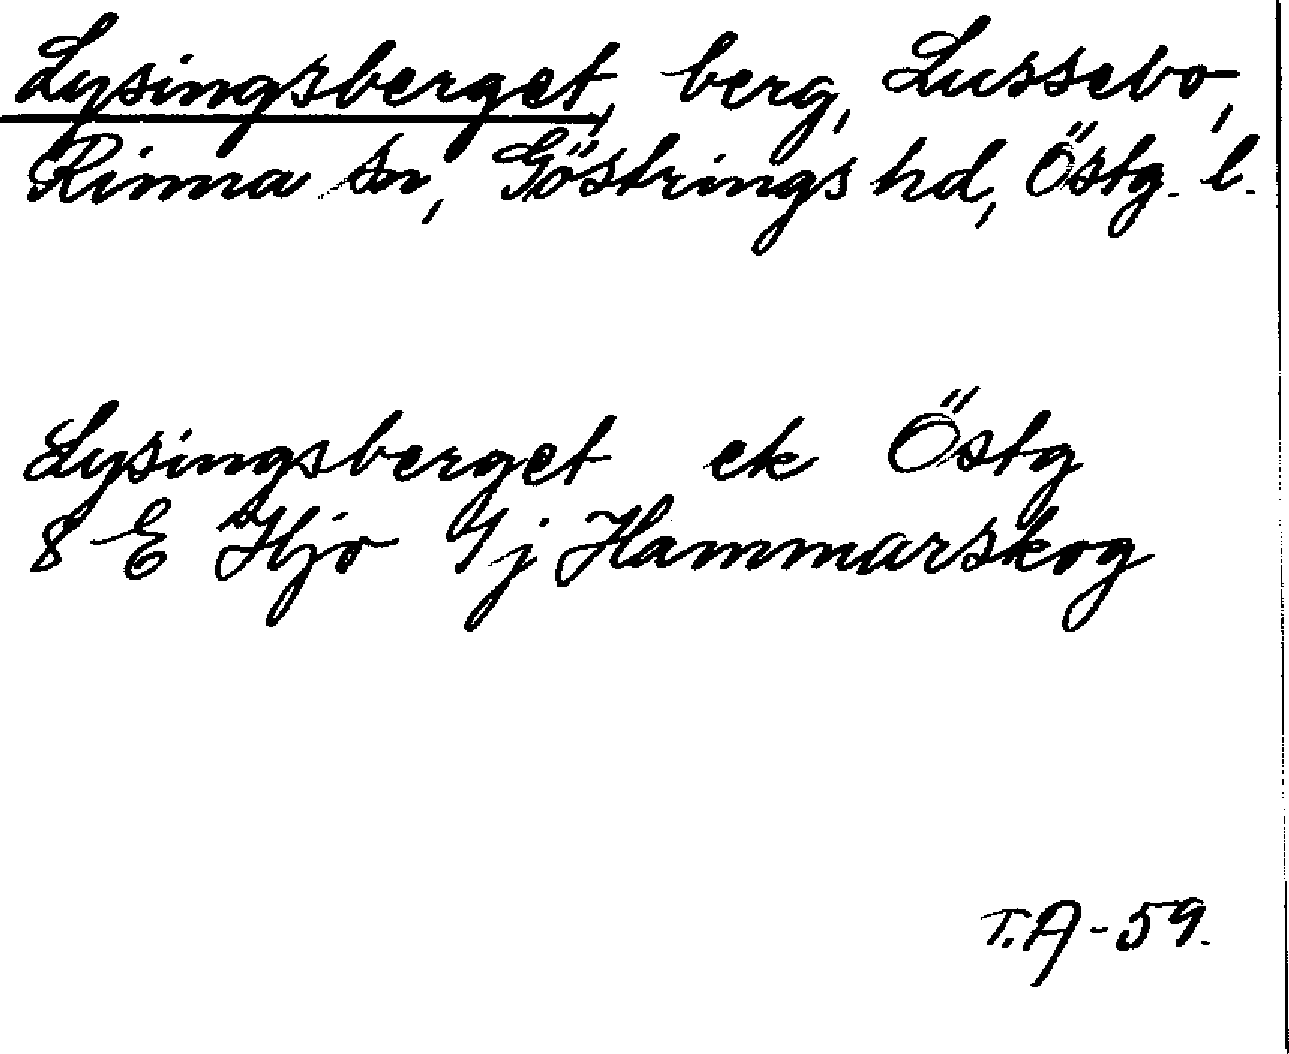 Lysingsberget, berg, Lussebo,
Rinna sn, Göstrings hd, Östg. l.
Lysingsberget ek Östg
8 E Hjo 4j Hammarskog
T.A-59.